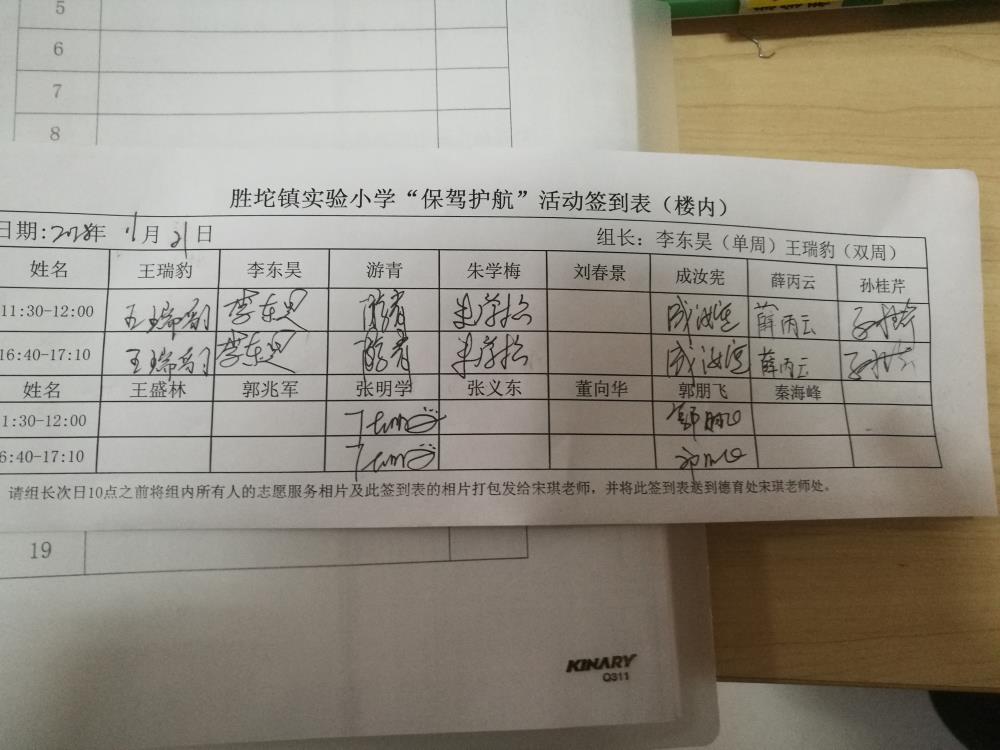 5
6
7
8
胜坨镇实验小学“保驾护航”活动签到表（楼内）
日期:2018年 11月 21日 组长：李东昊（单周）王瑞豹（双周）
姓名 王瑞豹 李东昊 游青 朱学梅 刘春景 成汝宪 薛丙云 孙桂芹
11:30-12:00 王瑞豹 李东昊 游青 朱学梅 成汝宪 薛丙云 孙桂芹
16:40-17:10 王瑞豹 李东昊 游青 朱学梅 成汝宪 薛丙云 孙桂芹
姓名 王盛林 郭兆军 张明学 张义东 董向华 郭朋飞 秦海峰
1:30-12:00 郭朋飞
6:40-17:10
请组长次日10点之前将组内所有人的志愿服务相片及此签到表的相片打包发给宋琪老师，并将此签到表送到德育处宋琪老师处。
19
KINARY
Q311